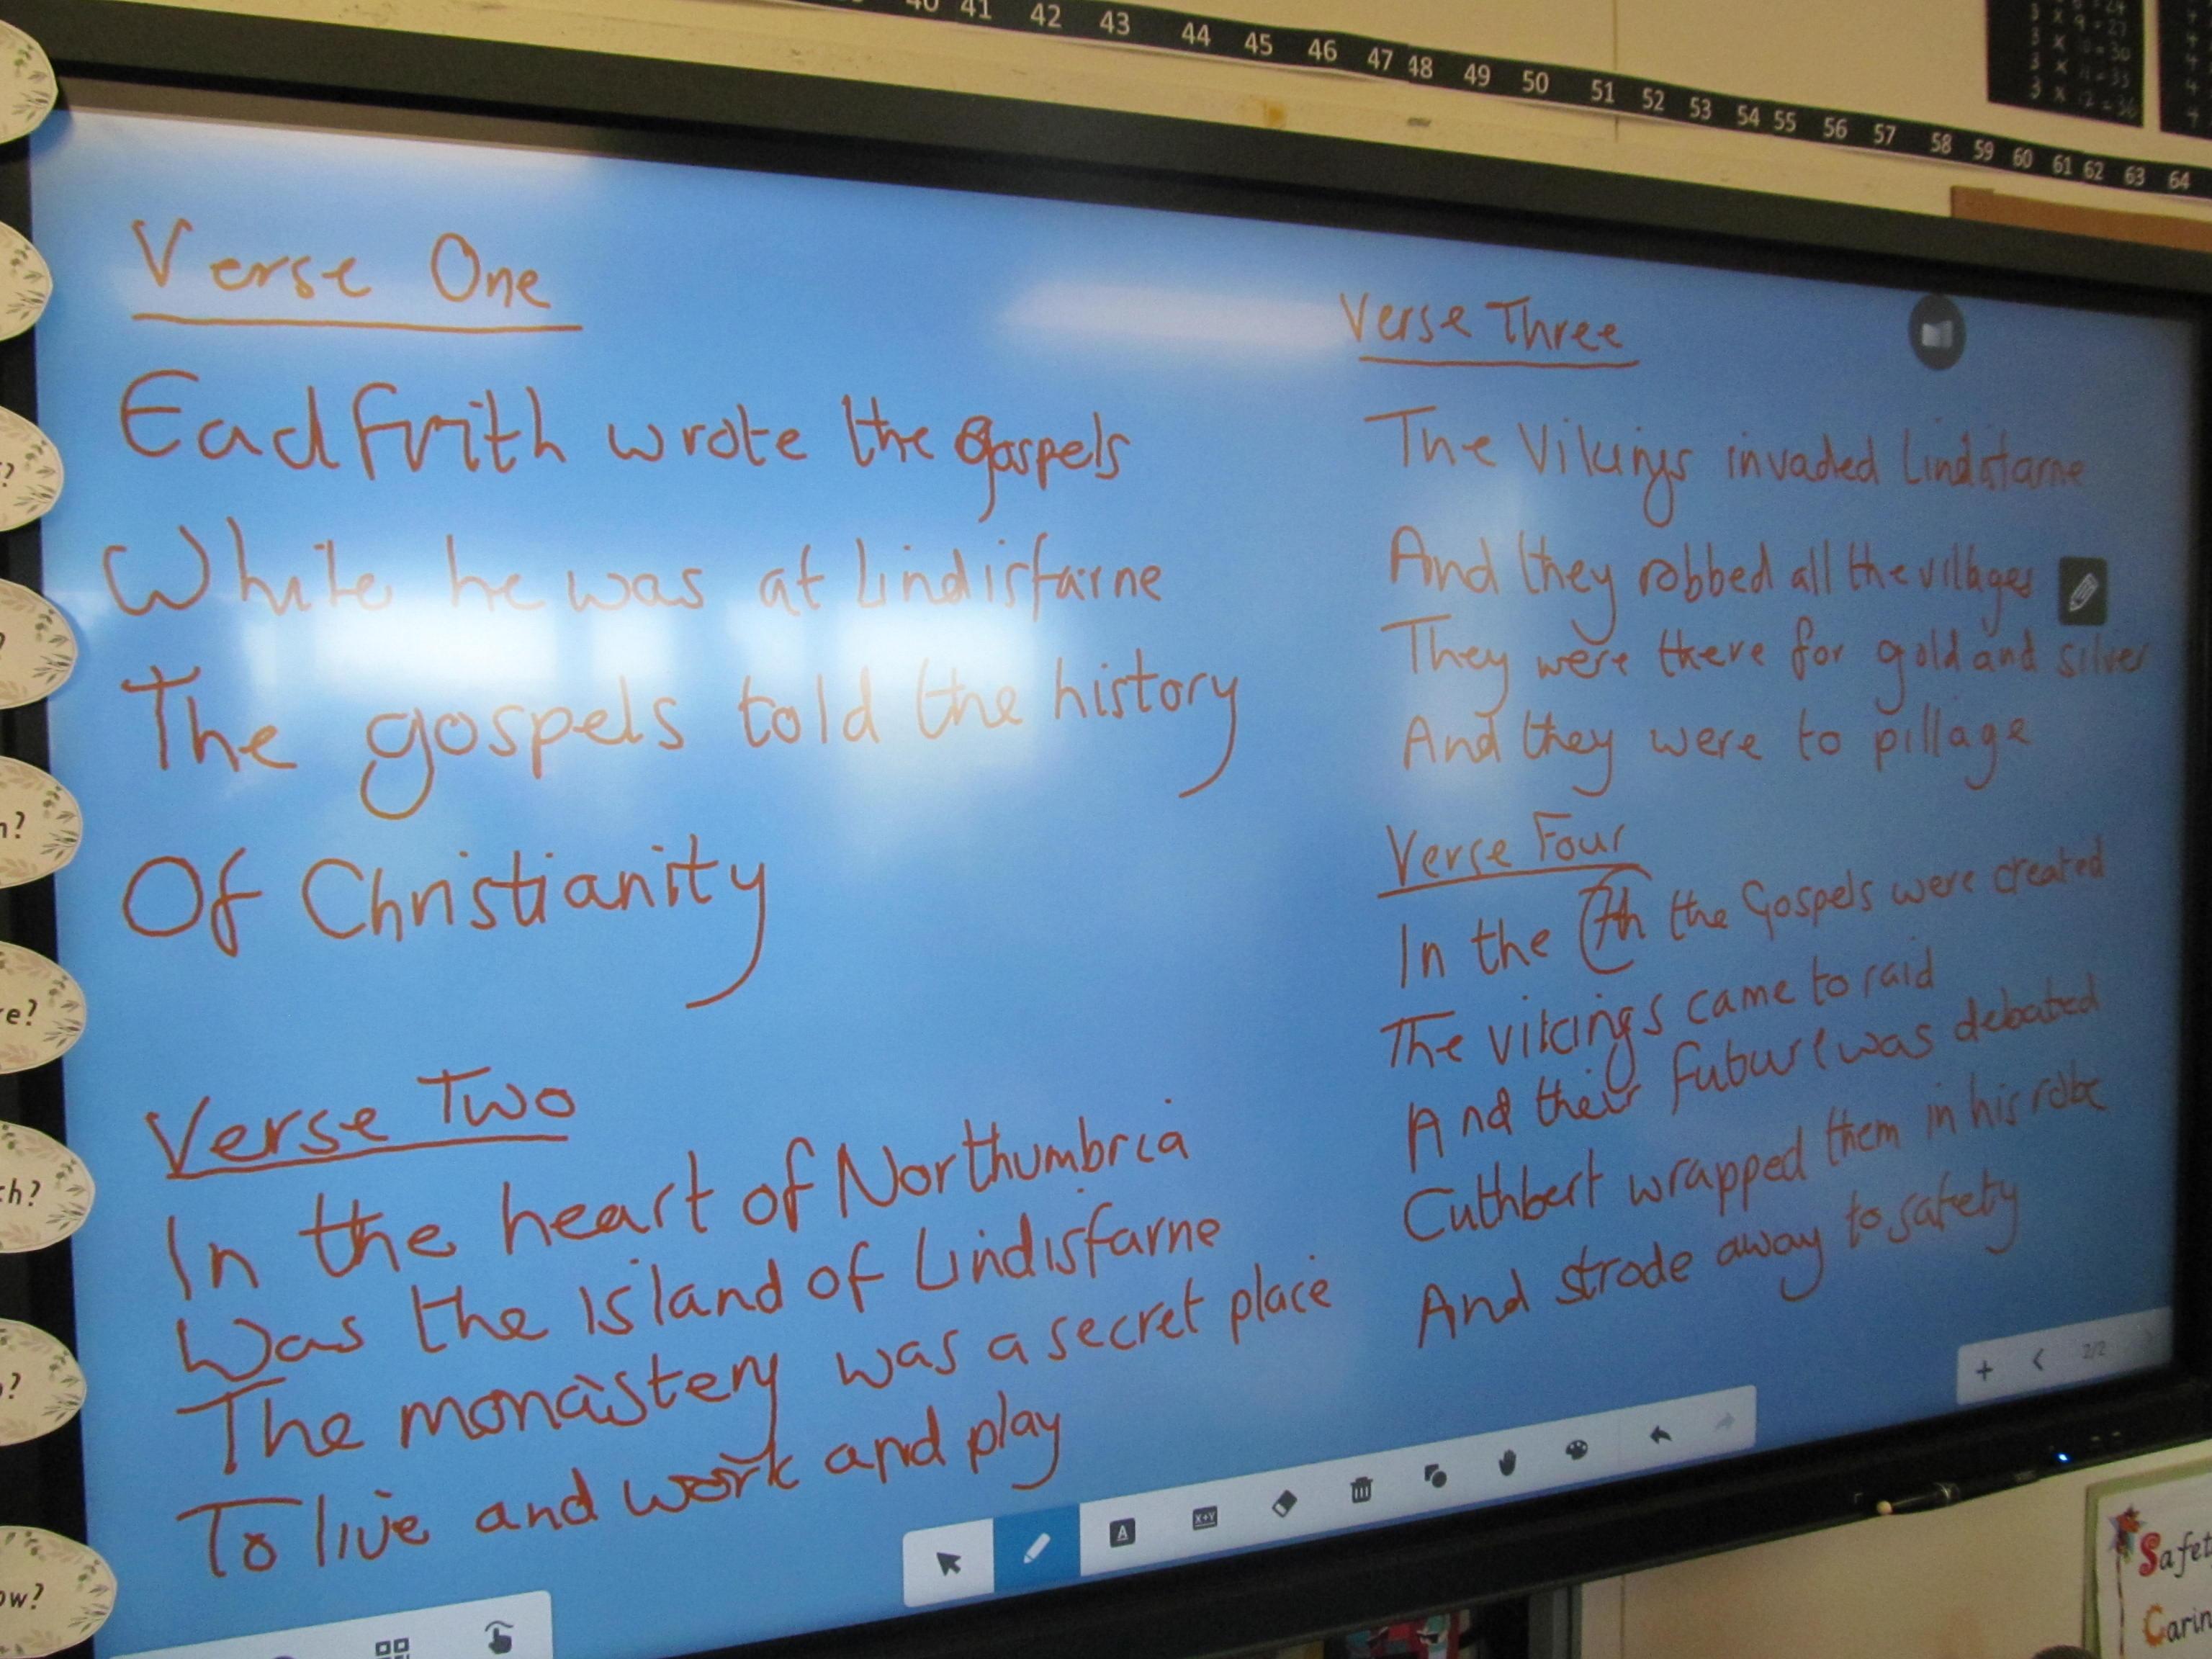 41 42 43 44 45 46 47 48 49 50 51 52 53 54 55 56 57 58 59 60 61 62 63 64
3 x 9 = 27
3 x 10 = 30
3 x 11 = 33
3 x 12 = 36
Verse One
Eadfrith wrote the gospels
While he was at Lindisfarne
The gospels told the history
Of Christianity
Verse Two
In the heart of Northumbria
Was the island of Lindisfarne
The monastery was a secret place
To live and work and play
Verse Three
The Vikings invaded Lindisfarne
And they robbed all the villages
They were there for gold and silver
And they were to pillage
Verse Four
In the the Gospels were created
The vikings came to raid
And their future was debated
Cuthbert wrapped them in his robe
And strode away to safety
2/2
A
x+y
?
?
n?
re?
ch?
?
ow?
Safet
Carin